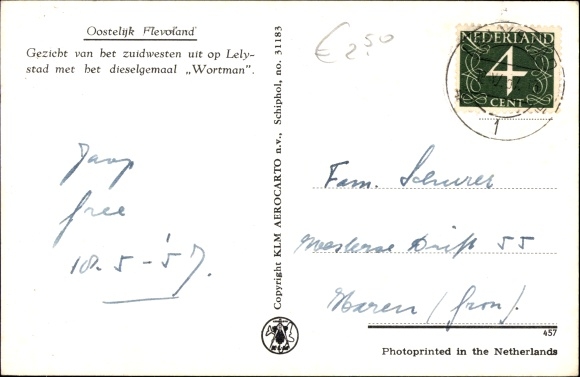 Oostelijk Flevoland
Gezicht van het zuidwesten uit op Lely-
stad met het dieselgemaal „Wortman”.
Jaap
free
18.5-'57.
Copyright KLM AEROCARTO n.v., Schiphol, no. 31183
€ 2.50
NEDERLAND
4
CENT
1
Fam. Scheurer
Westerse Drift 55
Haren (Gron).
457
Photoprinted in the Netherlands